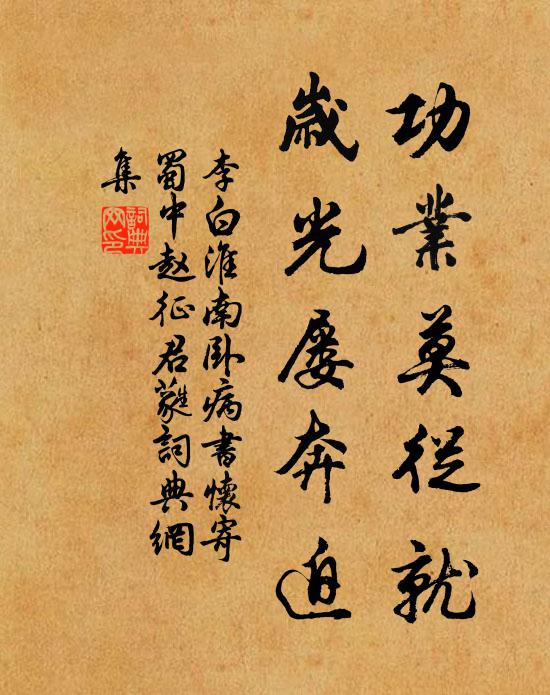 功業莫從就
歲光屢奔迫
李白淮南卧病書懷寄
蜀中赵征君蕤詞典網
集
詞典